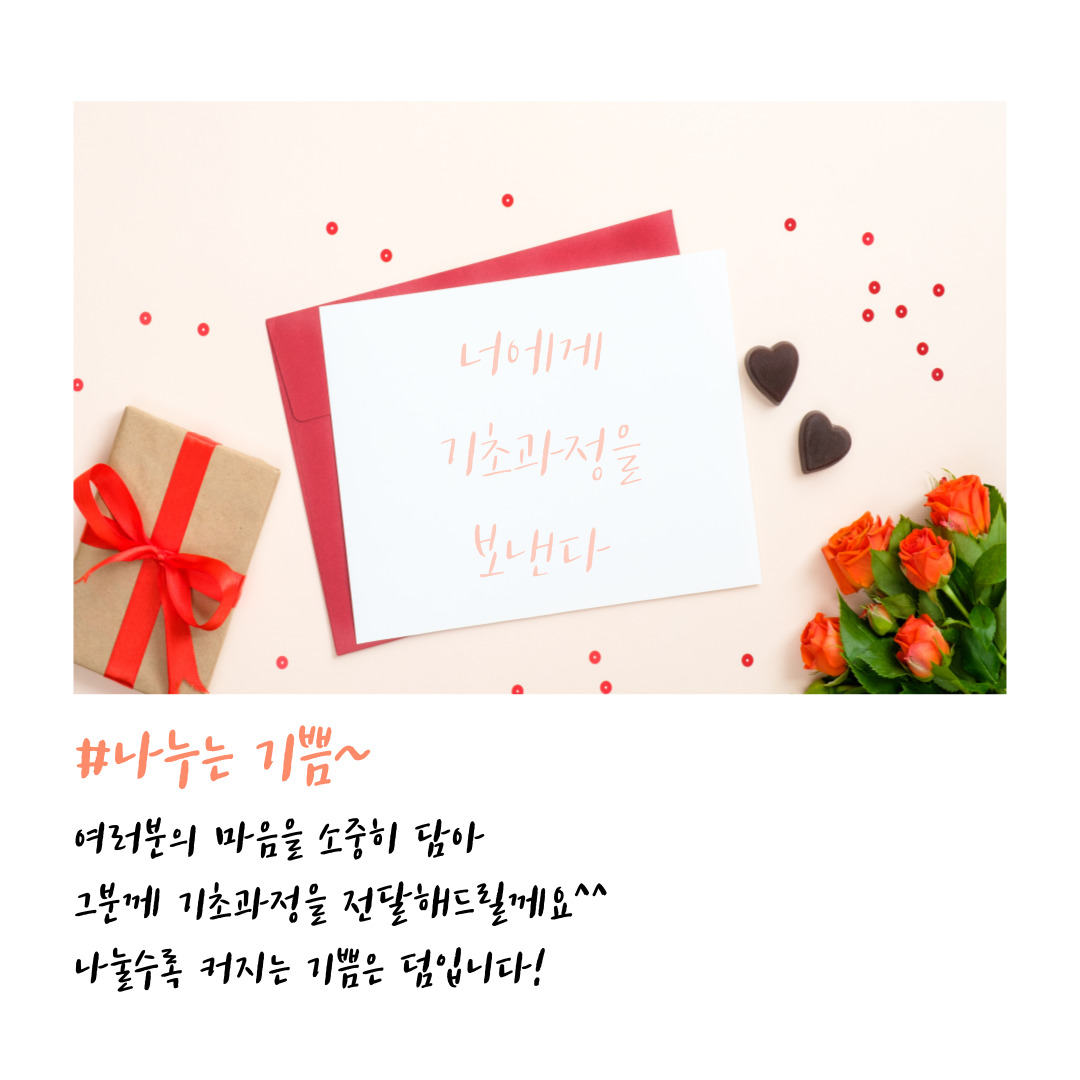 너에게
기초과정을
보낸다
#나누는 기쁨~
여러분의 마음을 소중히 담아
그분께 기초과정을 전달해드릴께요^^
나눌수록 커지는 기쁨은 덤입니다!